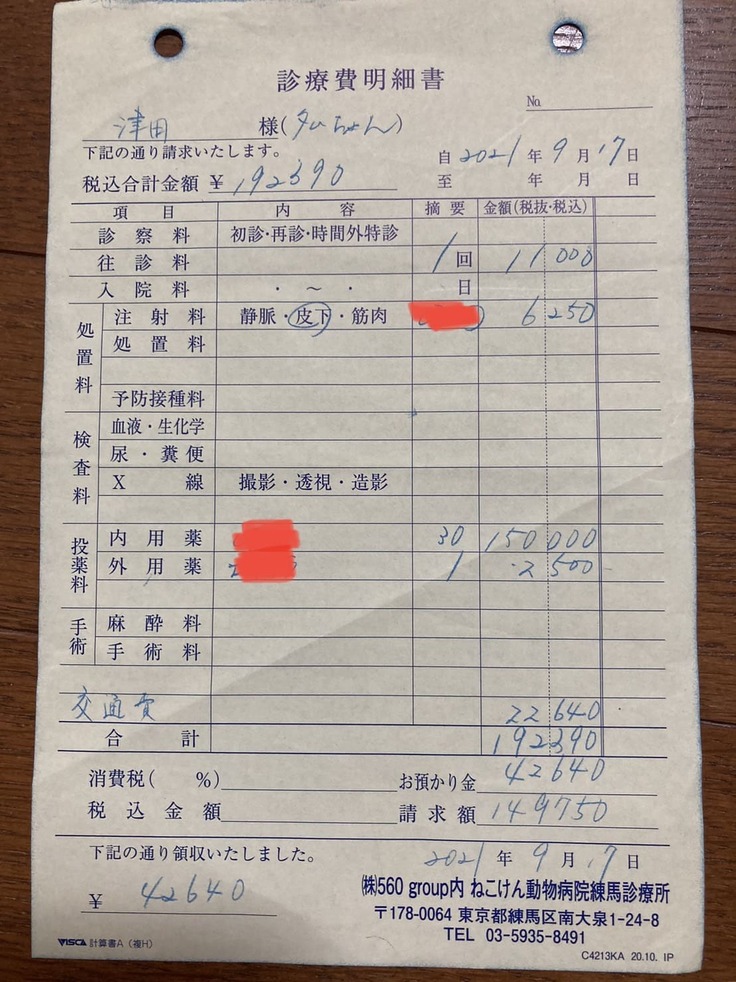 診療費明細書
No.
津田 様(タひちゃん)
下記の通り請求いたします。
自 2021 年 9 月 17 日
税込合計金額 ¥ 192390
至 年 月 日
項目 内容 摘要 金額(税抜・税込)
診察料 初診・再診・時間外特診
往診料 1回 11000
入院料 ・ ~ ・ 日
処置料
注射料 静脈・皮下・筋肉 6250
処置料
予防接種料
検査料
血液・生化学
尿・糞便
X線 撮影・透視・造影
投薬料
内用薬 30 150000
外用薬 1 2500
手術
麻酔料
手術料
交通費 22640
合計 192390
消費税( %) お預かり金 42640
税込金額 請求額 149750
下記の通り領収いたしました。 2021 年 9 月 17 日
¥ 42640
㈱560 group内 ねこけん動物病院練馬診療所
〒178-0064 東京都練馬区南大泉1-24-8
TEL 03-5935-8491
VISCA 計算書A(複H)
C4213KA 20.10. IP